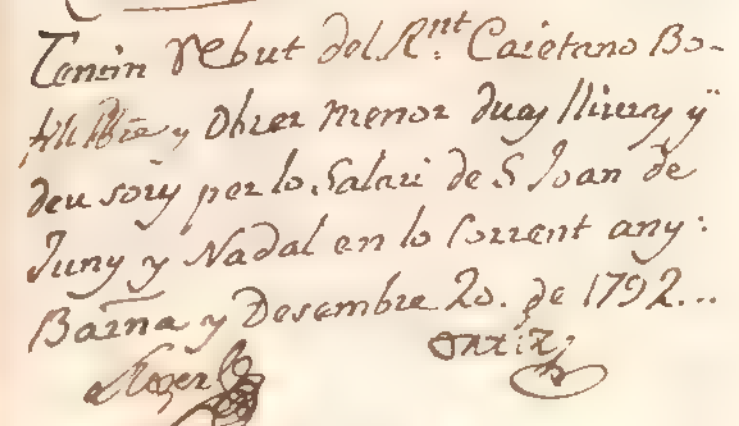 Tenim rebut del Rnt. Caietano Bo-
fill Pbre y Obrer menor duas lliuras y
deu sous per lo Salari de S Joan de
Juny y Nadal en lo Corrent any:
Barna y Desembre 20. de 1792...